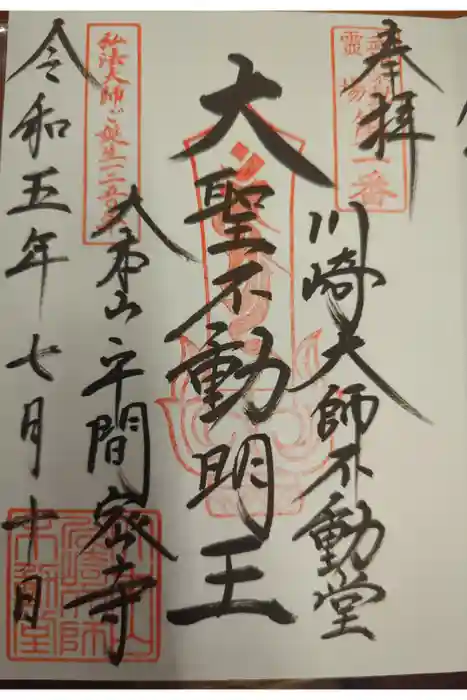 奉拝
川崎大師不動堂
大聖不動明王
大本山平間寺
令和五年七月十日
弘法大師ご誕生一二五〇年
霊場第一番